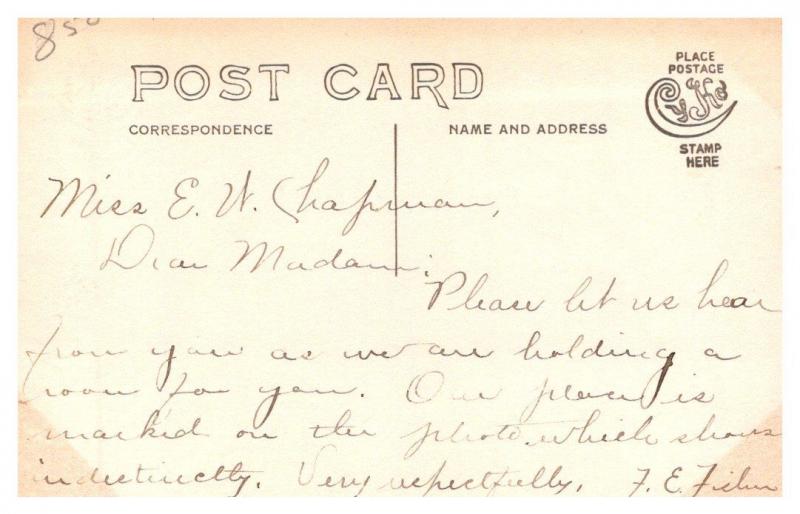 850
POST CARD
PLACE
POSTAGE
CORRESPONDENCE
NAME AND ADDRESS
STAMP
HERE
Miss E. W. Chapman,
Dear Madam:
Please let us hear
from you as we are holding a
room for you. Our place is
marked on the photo which shows
indistinctly. Very respectfully, F. E. Fisher